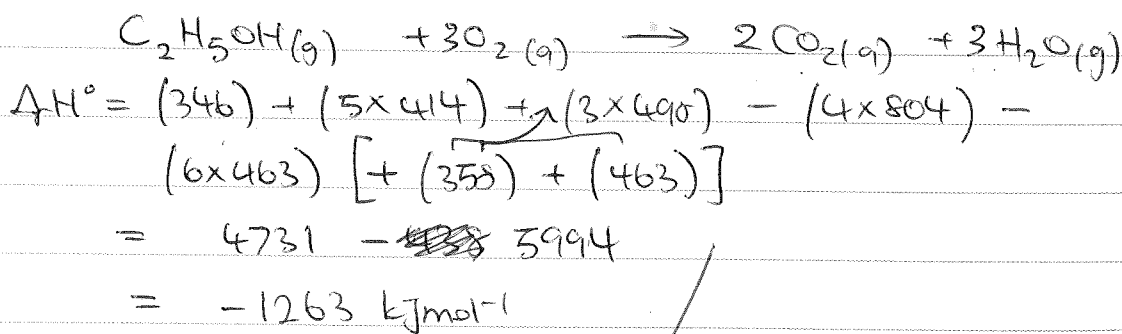 C₂H₅OH(g) + 3O₂(g) → 2CO₂(g) + 3H₂O(g)
ΔH° = (346) + (5×414) + (3×498) − (4×804) −
(6×463) [+ (358) + (463)]
= 4731 − 5994
= −1263 kJmol⁻¹